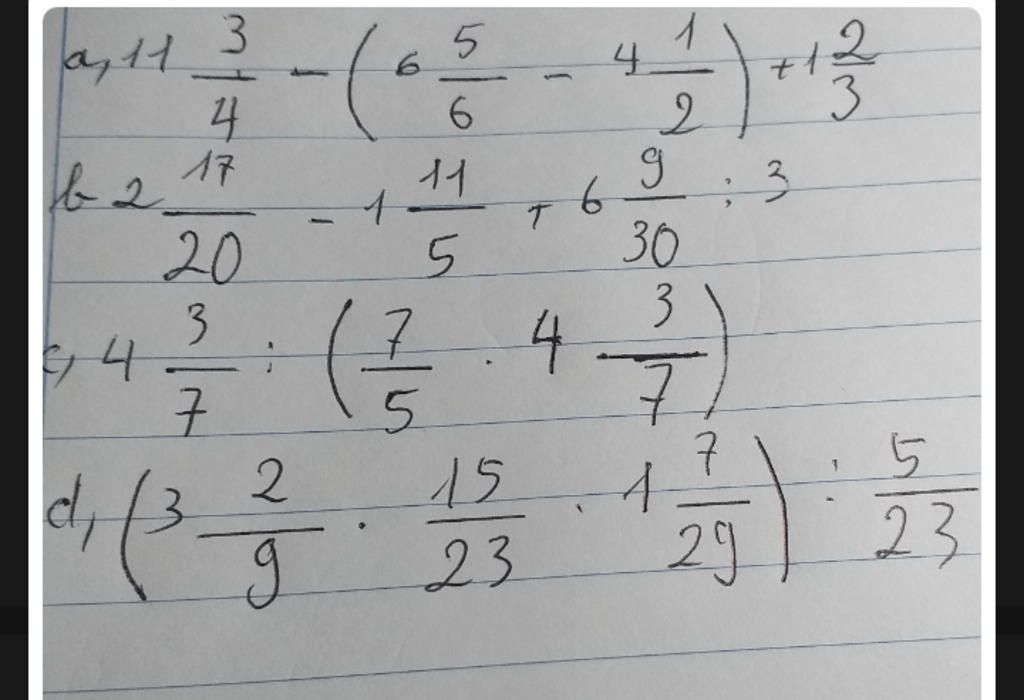 a, 11 3/4 - (6 5/6 - 4 1/2) + 1 2/3
b 2 17/20 - 1 11/5 + 6 9/30 : 3
c, 4 3/7 : (7/5 · 4 3/7)
d, (3 2/9 · 15/23 · 1 7/29) : 5/23